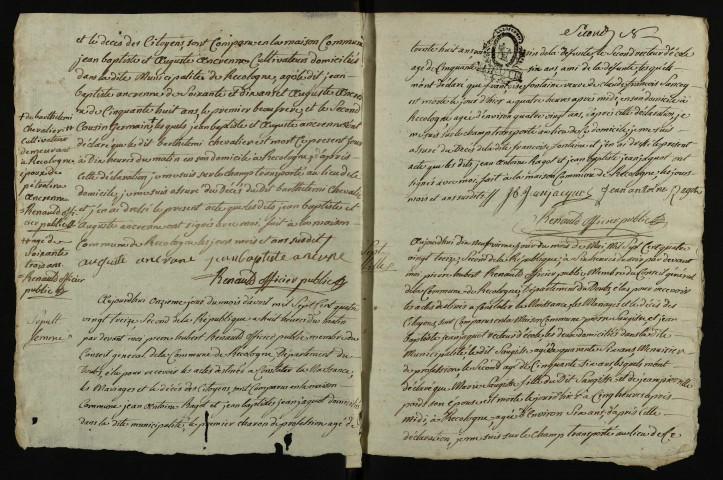 et le décès des Citoyens sont Comparu en la maison Commune
jean baptiste et Auguste ancrenne Cultivateurs domiciliés
dans la dite Municipalité de Recologne, agés le dit jean
baptiste ancrenne de Soixante et dix ans et Auguste ancren
ne de Cinquante huit ans, le premier beaufrere, et le Second
Cousin Germain + lesquels jean baptiste et Auguste ancrenne m'ont
déclaré que le dit barthelemi chevalier est mort ce present jour
à dix heures du matin en son domicile à Recologne, d'après
cette déclaration je me suis sur le champ transporté au lieu de ce
domicile, je me suis assuré du Décès du Dit barthelemi Chevalier
et j'en ai dressé le present acte que lesdits jean baptiste et
Auguste ancrenne ont signés avec moi, fait à la maison
Commune de Recologne les jour mois et an susdit
auguste ancrene jean baptiste ancrene
Renauld officier public
+ de barthelemi
Chevalier
Cultivateur
demeurant
à Recologne
époux de
ancrenne
Renauld offi-
cier public
agé de
Soixante
trois ans
Renauld officier
public
Sepult
femme
Aujourdhui onzieme jour du mois d'avril mil Sept Cent quatre
vingt treize, Second de la République à huit heures du matin
par devant moi pierre hubert Renauld officier public membre du
Conseil general de la Commune de Recologne, Département du
Doubs, élu pour recevoir les actes destinés à Constater les Naissances,
les Mariages et le décès des Citoyens, sont Comparus en la maison
Commune jean antoine Ragot et jean baptiste jeanjaquot domiciliés
dans la dite municipalité, le premier charon de profession agé de
Second
huit ans de la defunte, le Second recteur d'école
agé de Cinquante six ans ami de la defunte, lesquels
m'ont déclaré que françoise fontaine veuve de Claude françois
est morte le jour d'hier à quatre heures après midi, en son domicile à
Recologne agée d'environ quatre vingt ans, d'après cette déclaration, je
me suis sur le champ transporté au lieu de ce domicile, je me suis
assuré du Décès de la dite françoise fontaine, et j'en ai dressé le present
acte que les dits jean antoine Ragot et jean baptiste jeanjaquot ont
signés avec moi, fait à la maison Commune de Recologne, les jour
mois et an susdits J B Jeanjacquot Jean antoine Ragot
Renauld officier public
Sept
fille
Aujourdhui dix neuvieme jour du mois de Mai Mil Sept Cent quatre
vingt treize, Second de la République, à heures du par devant
moi pierre hubert Renauld officier public Membre du Conseil général
de la Commune de Recologne, Département du Doubs, élu pour recevoir
les actes destinés à Constater les Naissances, les Mariages et le décès des
Citoyens, sont Comparus en la Maison Commune et jean
baptiste jeanjaquot recteur d'école, les deux domiciliés dans la dite
Municipalité, le dit agé de quarante Six ans Menuisier
de profession, le Second agé de Cinquante Six ans lesquels m'ont
déclaré que Marie fille du dit et de jeanne
son épouse est morte le jour d'hier à Cinq heures après
midi, à Recologne agée d'Environ Six ans, d'après cette
déclaration, je me suis sur le Champ transporté au lieu de Ce